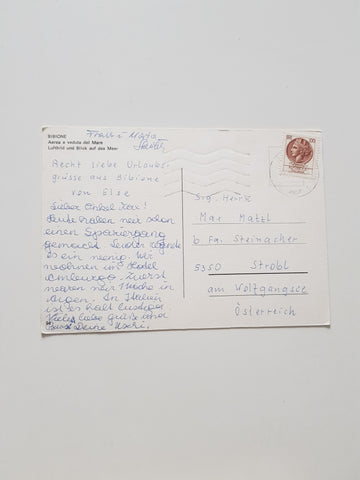 BIBIONE
Aerea e veduta del Mare
Luftbild und Blick auf das Meer
Recht liebe Urlaubs-
grüsse aus Bibione
von Else
Lieber Onkel Max!
Heute haben wir schon
einen Spaziergang
gemacht. Leider regnete
es ein wenig. Wir
wohnen im Hotel
zuerst
waren wir 1 Woche in
In Italien
ist es halt lustiger.
Viele liebe Grüße und
Deine Uschi.
Sig. Herrn
Max Matzl
b Fa. Steinacher
5350 Strobl
am Wolfgangsee
Österreich